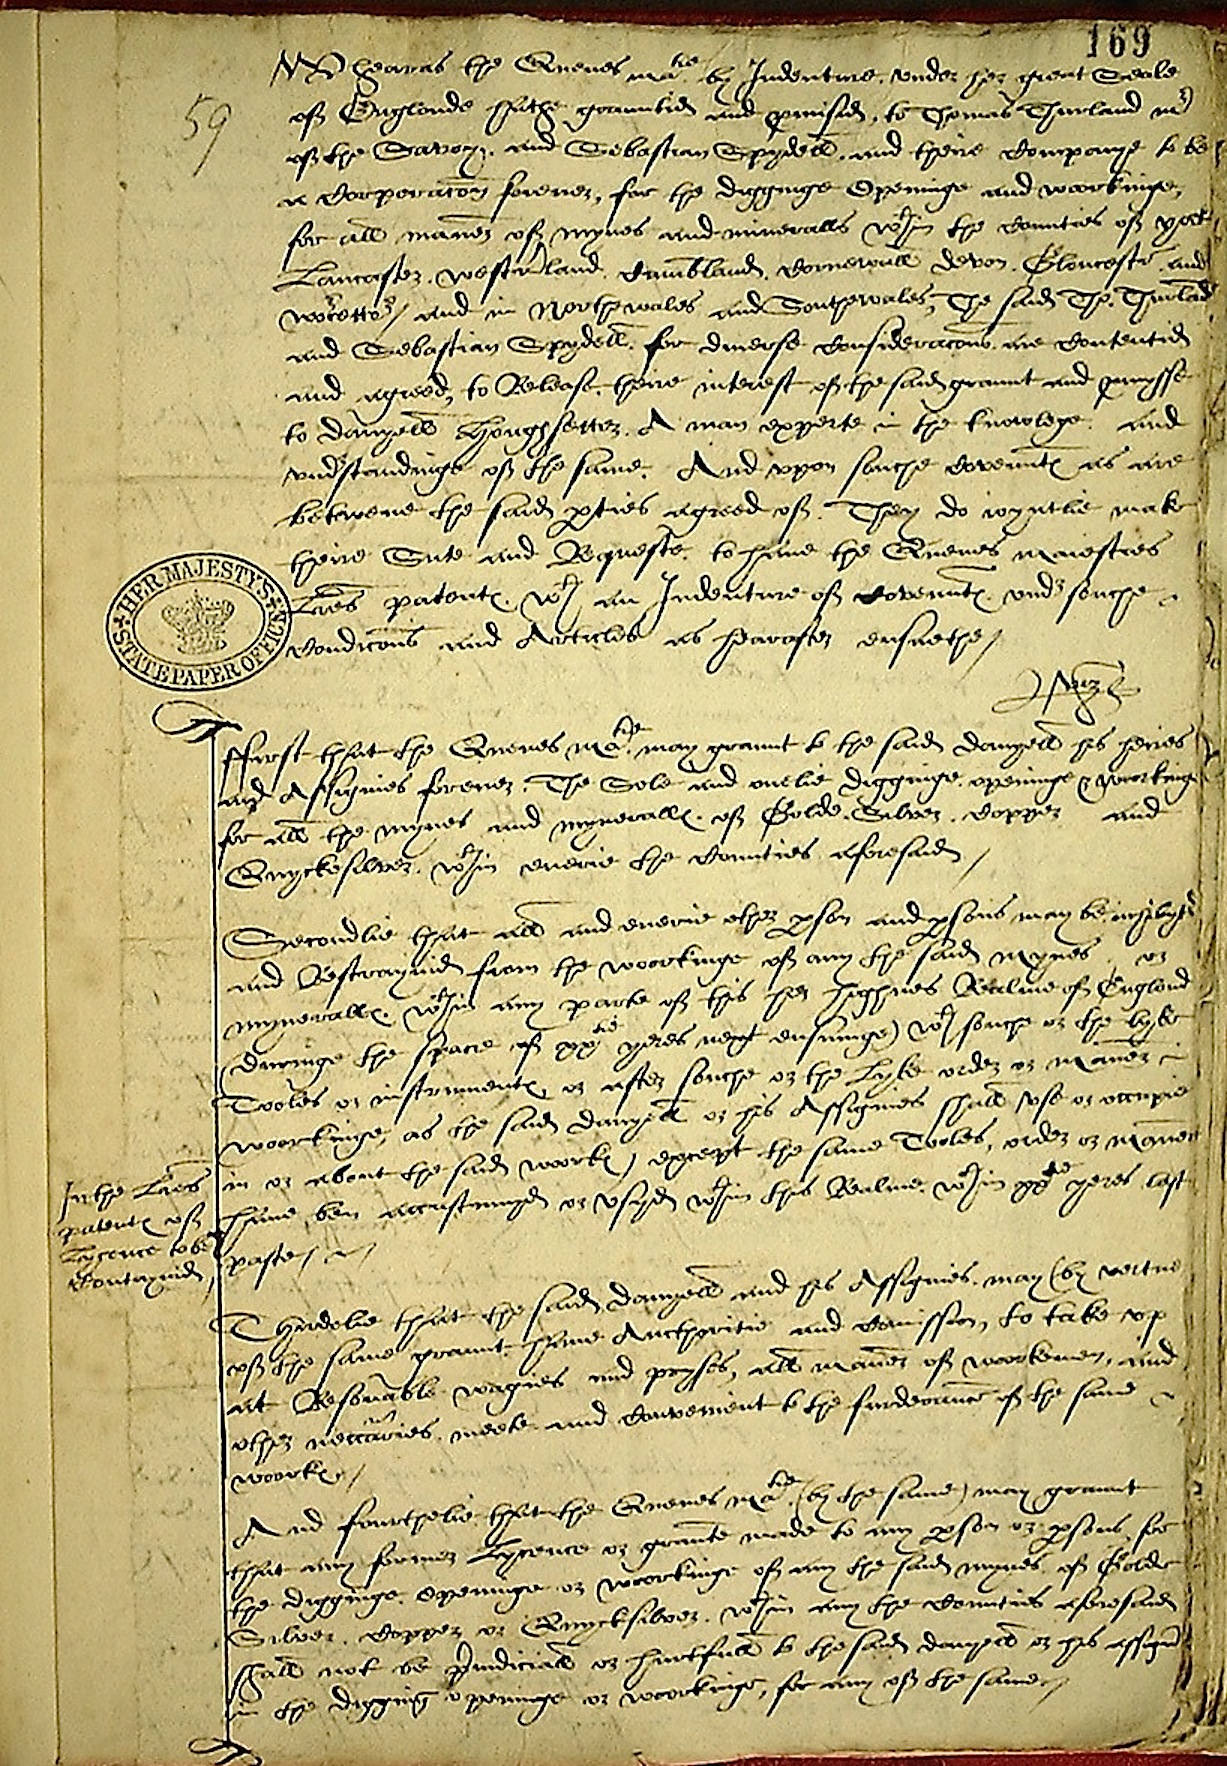 169
59
Wheareas the Quenes matie by Indenture under her great Seale
of Englonde hathe grauntid and promisid, to Thomas Thurland mr
of the Savoy, and Sebastian Spydell, and theire Companye to be
a Corporacon forever, for the digginge Openinge and workinge,
for all maner of mynes and mineralls wthin the Counties of york
Lancaster, westmrland, Cumbland, Cornewall devon, Gloucestr, and
worcettr / and in Northewales and Southewales, The said Tho. Thurland
and Sebastian Spydell, for diverse consideracons are Contentid
and agreed, to Release, there interest of the said graunt and promysse
to danyell Houghsetter, A man experte in the knowlege, and
understandinge of the same, And uppon souche Covenntes as are
betwene the said pties agreed of, They do ioyntlie make
theire Sute and Requeste, to have the Quenes maiesties
Lres patentes, wth an Indenture of Covenntes, undr souche
Condicons and Articles as hearafter ensuethe /
HER MAJESTY'S
STATE PAPER OFFICE
ffurst that the Quenes matie, may graunt to the said danyell his heires
and Assignies forever, The Sole and onelie digginge, openinge & workinge
for all the mynes and myneralles, of Golde, Silver, Copper and
Quyckesilver, wthin everie the Counties aforesaid /
Secondlie that all and everie other pson and psons may be inhibytid
and Restraynid from the woorkinge of any the said mynes or
myneralles, wthin any parte of this her highnes Realme of Englond
(duringe the space of xxtie yeres next ensuinge) wth souche or the lyke
Tooles or instrumentes, or after souche or the Lyke order or maner in
woorkinge, as the said danyell or his Assignies shall use or occupie
in or about the said workes, except the same Tooles, order or maner
In the Lres
patentes of
Lycence to be
Contaynid
have ben accustomyd or usyd wthin this Realme, wthin xxtie yeres last
paste /
Thirdelie that the said danyell and his Assignies, may (by vertue
of the same graunt) have Aucthoritie and Comission, to take up
at Resonable wagies and pryses, all maner of workemen, and
other neccaries, meete and Convenient to the furderance of the same
workes /
And fourthelie that the Quenes matie, (by the same) may graunt
that any former Lycence or graunte made to any pson or psons for
the digginge, openinge or woorkinge of any the said mynes, of Golde
Silver, Copper or Quycksilver, wthin any the Counties aforesaid
shall not be Preiudiciall or hurtfull to the said danyell or his assignes
in the digging openinge or woorkinge, for any of the same /